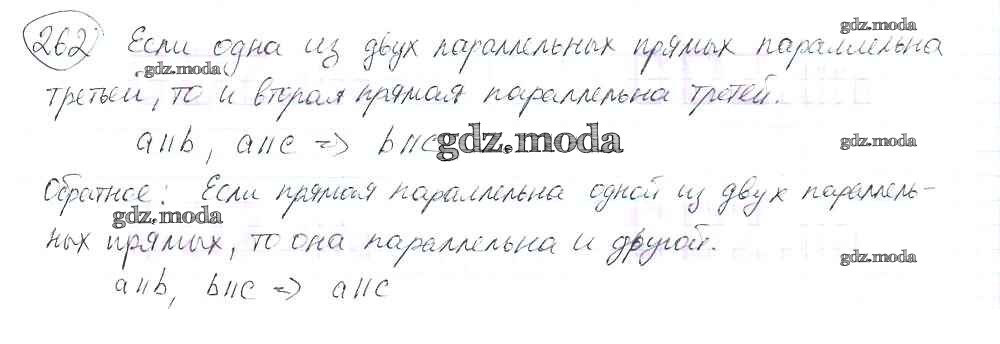 262 Если одна из двух параллельных прямых параллельна
третьей, то и вторая прямая параллельна третей.
a॥b, a॥c => b॥c
Обратное: Если прямая параллельна одной из двух параллель-
ных прямых, то она параллельна и другой.
a॥b, b॥c => a॥c
gdz.moda
gdz.moda
gdz.moda
gdz.moda
gdz.moda
gdz.moda